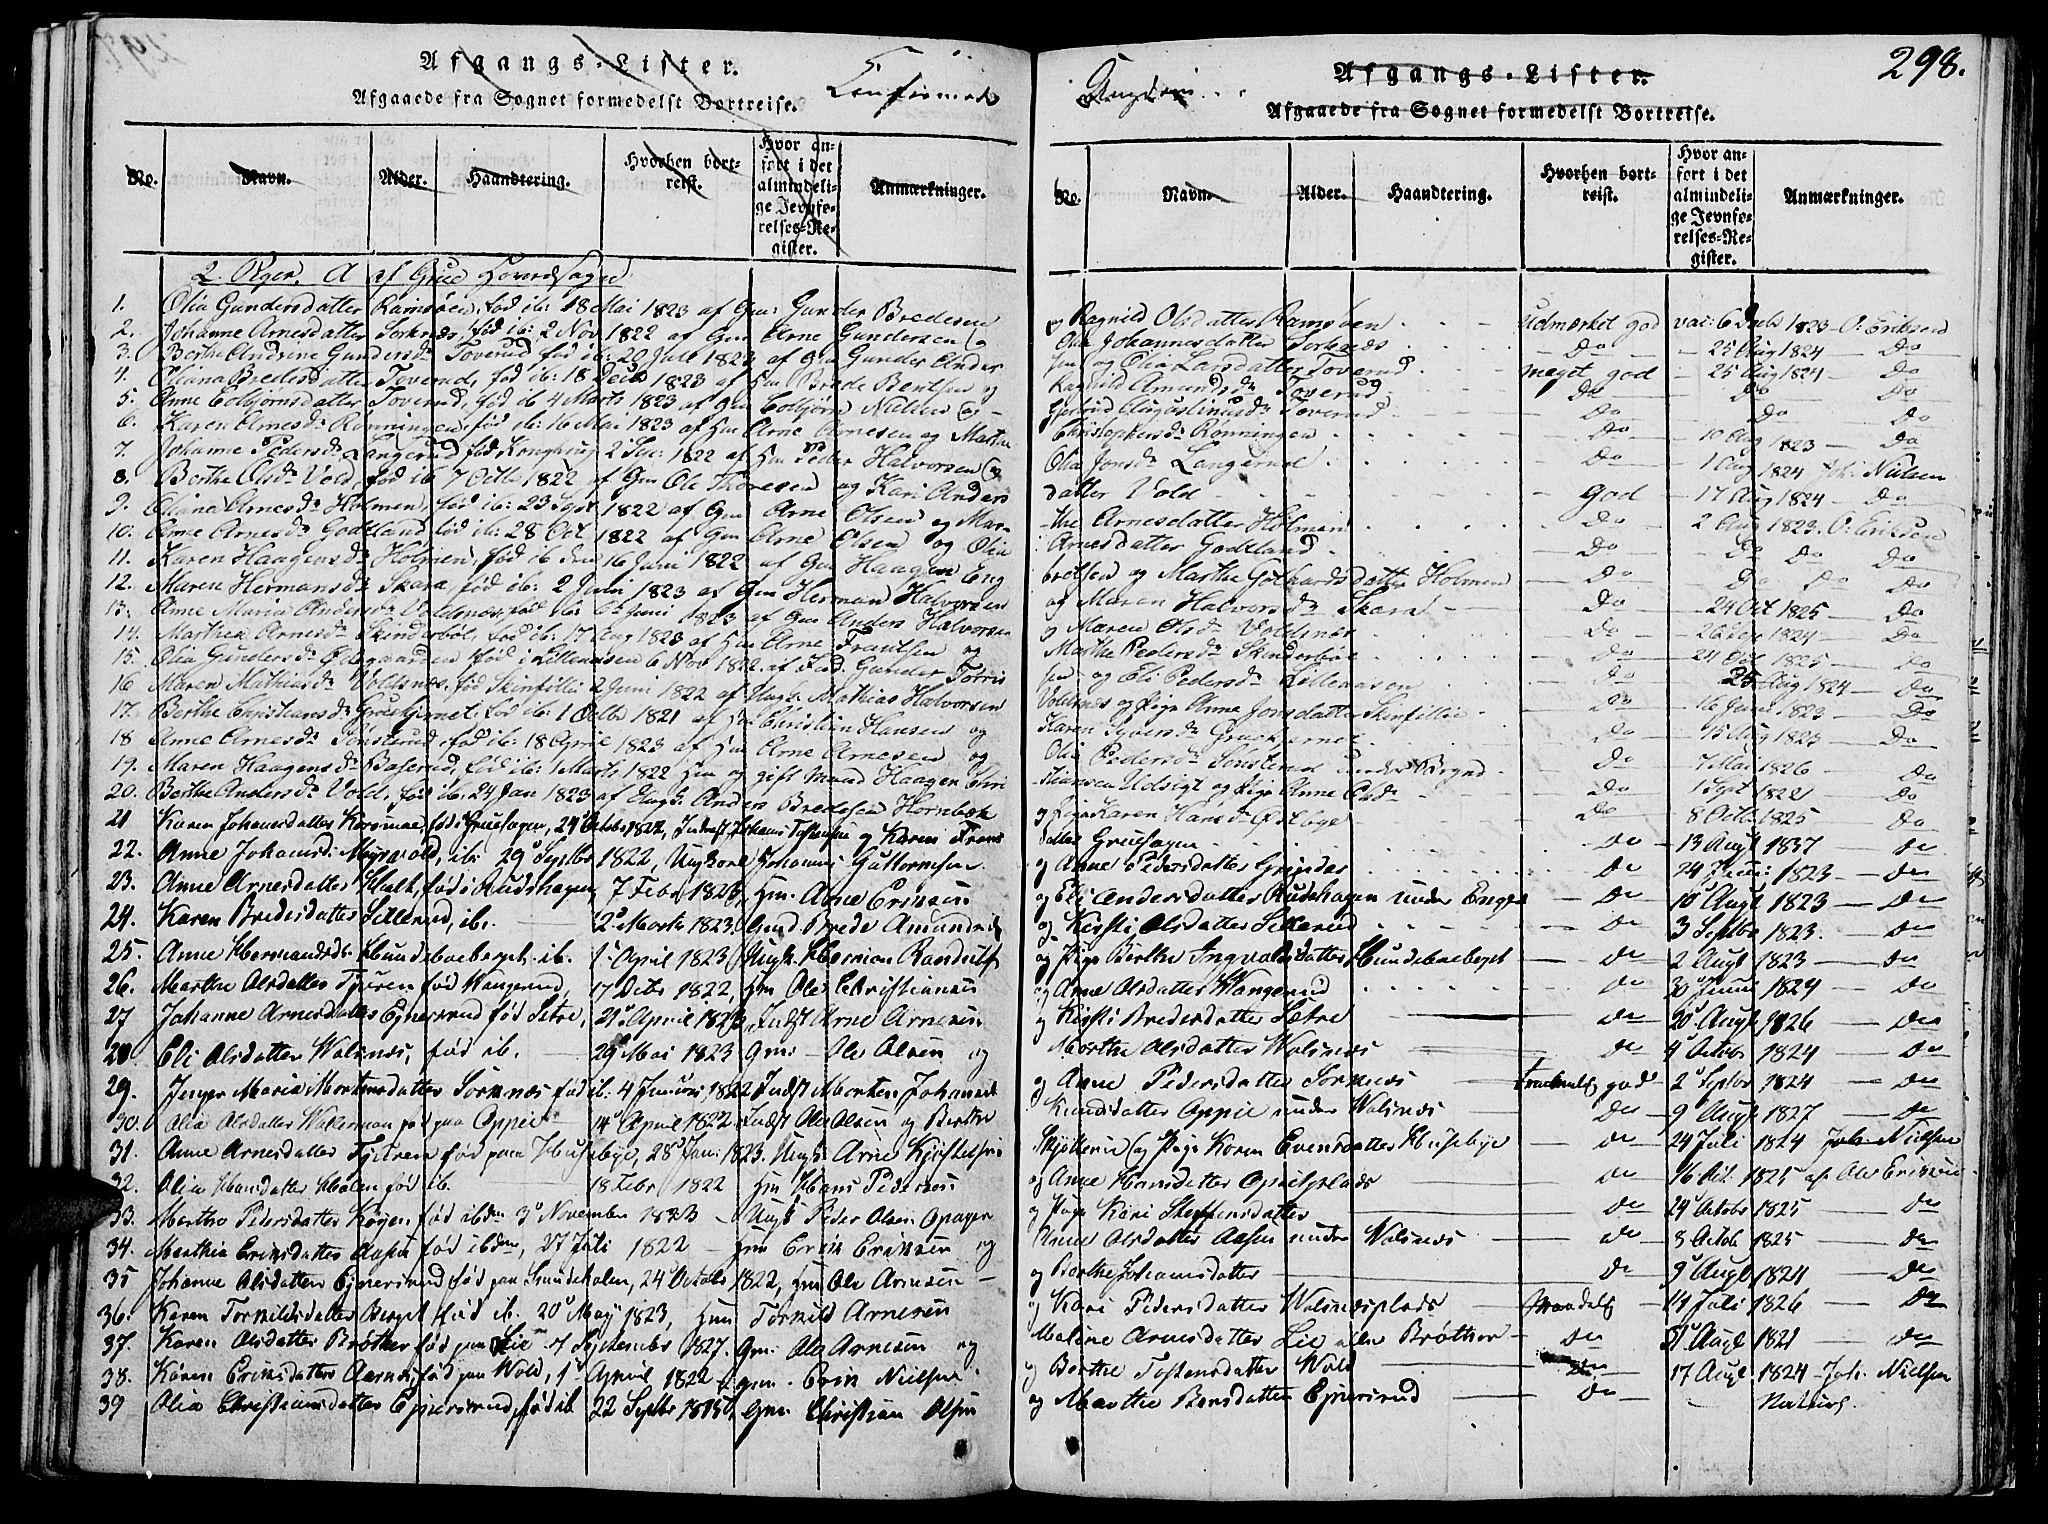 Afgangs-Lister.
Afgaaede fra Sognet formedelst Bortreise.
No.
Navn.
Alder.
Haandtering.
Hvorhen bort-
reist.
Hvor an-
ført i det
almindeli-
ge Jevnfø-
relses-Re-
gister.
Anmærkninger.
2. Piger. A af Grue Hovedsogn
1. Olia Gundersdatter Ramsøen, fød ib: 18 Mai 1823 af Gm: Gunder Bredesen
2. Johanne Arnesdatter Sorknes, fød ib: 2 Nov 1822 af Gm Arne Gundersen og
3. Berthe Andrine Gundersd: Toverud fød ib: 20 1823 af Gm Gunder Ander
4. Oliana Bredesdatter Toverud, fød ib: 18 1823 af Hm Brede Bentsen og
5. Anne Colbjørnsdatter Toverud, fød ib 4 Marts 1823 af Gm Colbjørn Nielsen og
6. Karen Arnesd: Rønningen, fød ib: 16 Mai 1823 af Hm Arne Arnesen og Marthe
7. Johanne Pedersd: Langerud fød 2 1822 af Hm Peder Halvorsen og
8. Berthe Olsd: Vold, fød ib 7 Octb 1822 af Gm Ole Thoresen og Kari Anders
9. Oliane Arnesd: Holmen, fød ib: 23 Sept 1822 af Gm Arne Olsen og Mar-
10. Anne Arnesd: Godtland fød ib: 28 Oct 1822 af Gm Arne Olsen og Olia
11. Karen Haagensd: Holmen, fød ib den 16 Juni 1822 af Gm Haagen Eng
12. Maren Hermansd: Skara, fød ib: 2 Juni 1823 af Gm Herman Halvorsen
13. Anne Maria Andersd: Voldsnæs, fød ib: Juni 1823 af Gm Anders Halvorsen
14. Marthea Arnesd: Skinderbøl, fød ib: 17 Aug 1823 af Hm Arne Frantsen og
15. Olia Gundersd: Ødegaarden fød i Lilleaasen 6 Nov 1822 af Ind. Gunder Torris
16 Maren Mathiasd: Voldsnæs, fød Skinfillie 2 Juni 1822 af Ungk: Mathias Halvorsen
17. Berthe Christiansd: Gruekjernet, fød ib: 1 Octb 1821 af Christian Hansen og
18 Anne Arnesd: Sønsterud, fød ib: 18 April 1823 af Hm Arne Arnesen og
19. Maren Haagensd: Baserud, fød ib: 1 Marts 1822 Hm og gift Mand Haagen Chri
20. Berthe Andersd: Vold, fød ib: 24 Jan 1823 af Ungk: Anders Bredesen Hornbæk
21 Karen Johansdatter Korsmoe, fød i Grueshagen, 24 Octob 1822, Indst Johannes Tostensen og Karen Frans
22. Anne Johansd: Myrvold, ib: 29 Septb 1822, Ungkarl Johannes Guttormsen
23. Anne Arnesdatter Hvalt, fød i Rudshagen, 7 Febr 1823, Hm. Arne Erichsen
24. Karen Bredesdatter Sillerud, ib. 12 Marts 1823. Gmd Brede Amundsen
25. Anne Hermandsdtr Hundeboeberget ib. 1 April 1823, Ungk. Herman Randulf
26. Marthe Olsdatter Tjuren fød Wangerud, 17 Decbr 1822, Hm Ole Christiansen
27 Johanne Arnesdatter Ejnersrud fød Sætre, 21 April 1823 Indst Arne Arnesen
28. Eli Olsdatter Wolsnæs, fød ib. 29 Mai 1823 Gm: Ole Olsen og
29. Jenger Maria Mortensdatter Sornnæs fød ib: 4 Januari 1822 Indst Morten Johannes
30. Olia Olsdatter Wakerman fød paa Oppie 14 April 1822 Indst Ole Olsen og Berthe
31. Anne Arnesdatter Tjuren fød paa Husebye, 28 Jan: 1823. Ungk. Arne Kjostelsen
32. Olia Hansdatter Molen fød ib. 18 Febr 1822 Hm Hans Pedersen
33. Marthe Pedersdatter Røgen fød ibdm 3 November 1823 Ungk Peder Olsen Opager
34. Marthia Erichsdatter Aasen fød ibdm, 27 Juli 1822 Hm Erich Erichsen og
35 Johanne Olsdatter Ejnersrud fød paa Sundeholen, 24 Octob 1822, Hm Ole Arnesen
36. Karen Tornildsdatter Berget fød ib. 20 Maj 1823, Hm Tornild Arnesen
37. Karen Olsdatter Brøther fød paa Lie 7 September 1827. Gm: Ole Arnesen og
38. Karen Erichsdatter Aarnæs, fød paa Wold, 1 April 1822 gm. Erich Nielsen
39 Olia Christiansdatter Ejnersrud, fød ib 22 Septbr Gm: Christian Olsen
298.
Afgangs-Lister.
Afgaaede fra Sognet formedelst Bortreise.
No.
Navn.
Alder.
Haandtering.
Hvorhen bort-
reist.
Hvor an-
ført i det
almindeli-
ge Jevnfø-
relses-Re-
gister.
Anmærkninger.
og Ragnild Olsdatter Ramsøen udmærket god vac: 6 1823 O: Eriksen
Olia Johannesdatter Sorknæs Do 25 Aug 1824 Do
sen og Olia Larsdatter Toverud meget god 25 Aug 1824 Do
Ragnild Amundsd: Toverud Do Do Do
Gjertrud Augustinusd: Toverud Do Do Do
Christophersd: Rønningen Do 10 Aug 1823 Do
Olia Jonsd: Langerud Do 1 Aug 1824 Joh: Nielsen
datter Vold god 17 Aug 1824 Do
the Arnesdatter Holmen Do 2 Aug 1823. O: Eriksen
Arnesdatter Godtland Do Do Do Do
bretsen og Marthe Gulbrandsdatter Holmen Do Do Do Do
og Maren Halvorsd: Skara Do 24 Oct 1825 Do
og Maren Olsd: Voldsnæs Do 26 1824 Do
Marthe Pedersd: Skinderbøl Do 24 Oct 1825 Do
sen og Eli Pedersd: Lilleaasen Do 25 Aug 1824 Do
Voldsnæs og Pige Anne Jonsdatter Skinfillie Do 16 Juni 1823 Do
Karen Syversd: Gruekjernet Do 15 Aug 1823 Do
Olia Pedersd: Sønsterud under Do 7 Mai 1826 Do
stiansen Udsigt og Pige Anne Do 1 Sept 1822 Do
og Pige Karen Hansd: Østebye Do 8 Octb 1825 Do
datter Grueshagen Do 13 Augt 1837 Do
og Anne Pedersdatter Grindes Do 24 Juni 1823 Do
og Eli Andersdatter Rudshagen under Enger Do 10 Augt 1823 Do
og Kirsti Olsdatter Sillerud Do 3 Septbr 1823 Do
og Pige Berthe Ingvaldsdatter Hundeboeberget Do 2 Augt 1823 Do
og Anne Olsdatter Wangerud Do 30 Juni 1824 Do
og Kirsti Bredesdatter Sætre Do 20 Augt 1826 Do
Marthe Olsdatter Wolsnæs Do 4 Octob 1824 Do
og Anne Pedersdatter Sornnæs god 2 Septbr 1824 Do
Knudsdatter Oppie under Wolsnæs Do 9 Augt 1827 Do
og Pige Karen Evensdatter Husebye Do 24 Juli 1824 Joh. Nielsen
og Anne Hansdatter Opseitplads Do 16 Oct. 1825 af Ole Erichsen
og Pige Kari Steffensdatter Do 24 Octobr 1825 Do
Anne Olsdatter Aasen under Wolsnæs Do 8 Octob 1825 Do
og Berthe Johannsdatter Do 9 Augt 1824 Do
og Kari Pedersdatter Wolsnæsplads 14 Juli 1826 Do
Maline Arnesdatter Lie eller Brøther Do 31 Augt 1821 Do
og Berthe Tostensdatter Wold Do 17 Augt 1824 Joh. Nielsen
og Marthe Bersdatter Ejnersrud Do